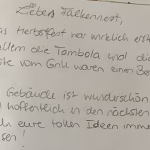 Liebes Falkennest,
as Herbstfest war wirklich erst
allem die Tombola und die
ke vom Grill waren einen Be
Gebäude ist wunderschön
d hoffentlich in den nächsten
ch eure tollen Ideen immer
sen!